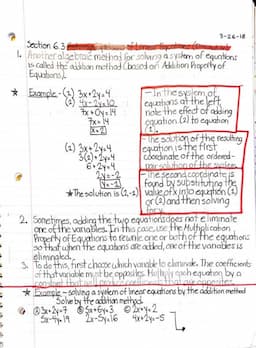 3-26-18
Section 6.3
1. Another algebraic method for solving a system of equations
is called the addition method (based on Addition Property of
Equations).
★ Example - (1) 3x+2y=4
(2) 4x-2y=10
7x+0y=14
7x=14
x=2
- In the system of
equations at the left,
note the effect of adding
equation (2) to equation
(1).
- The solution of the resulting
equation is the first
coordinate of the ordered-
- The second coordinate is
found by substituting the
value of x into equation (1)
or (2) and then solving
(1) 3x+2y=4
3(2)+2y=4
6+2y=4
2y=-2
y=-1
★ The solution is (2,-1)
2. Sometimes, adding the two equations does not eliminate
one of the variables. In this case, use the Multiplication
Property of Equations to rewrite one or both of the equations
so that when the equations are added, one of the variables is
eliminated.
3. To do this, first choose which variable to eliminate. The coefficients
of that variable must be opposites. Multiply each equation by a
constant that will produce coefficients that are opposites.
★ Example - Solving a system of linear equations by the addition method
Solve by the addition method
Ⓐ 3x+2y=7 Ⓑ 5x+6y=3 Ⓒ 2x+y=2
5x-4y=19 2x-5y=16 4x+2y=-5